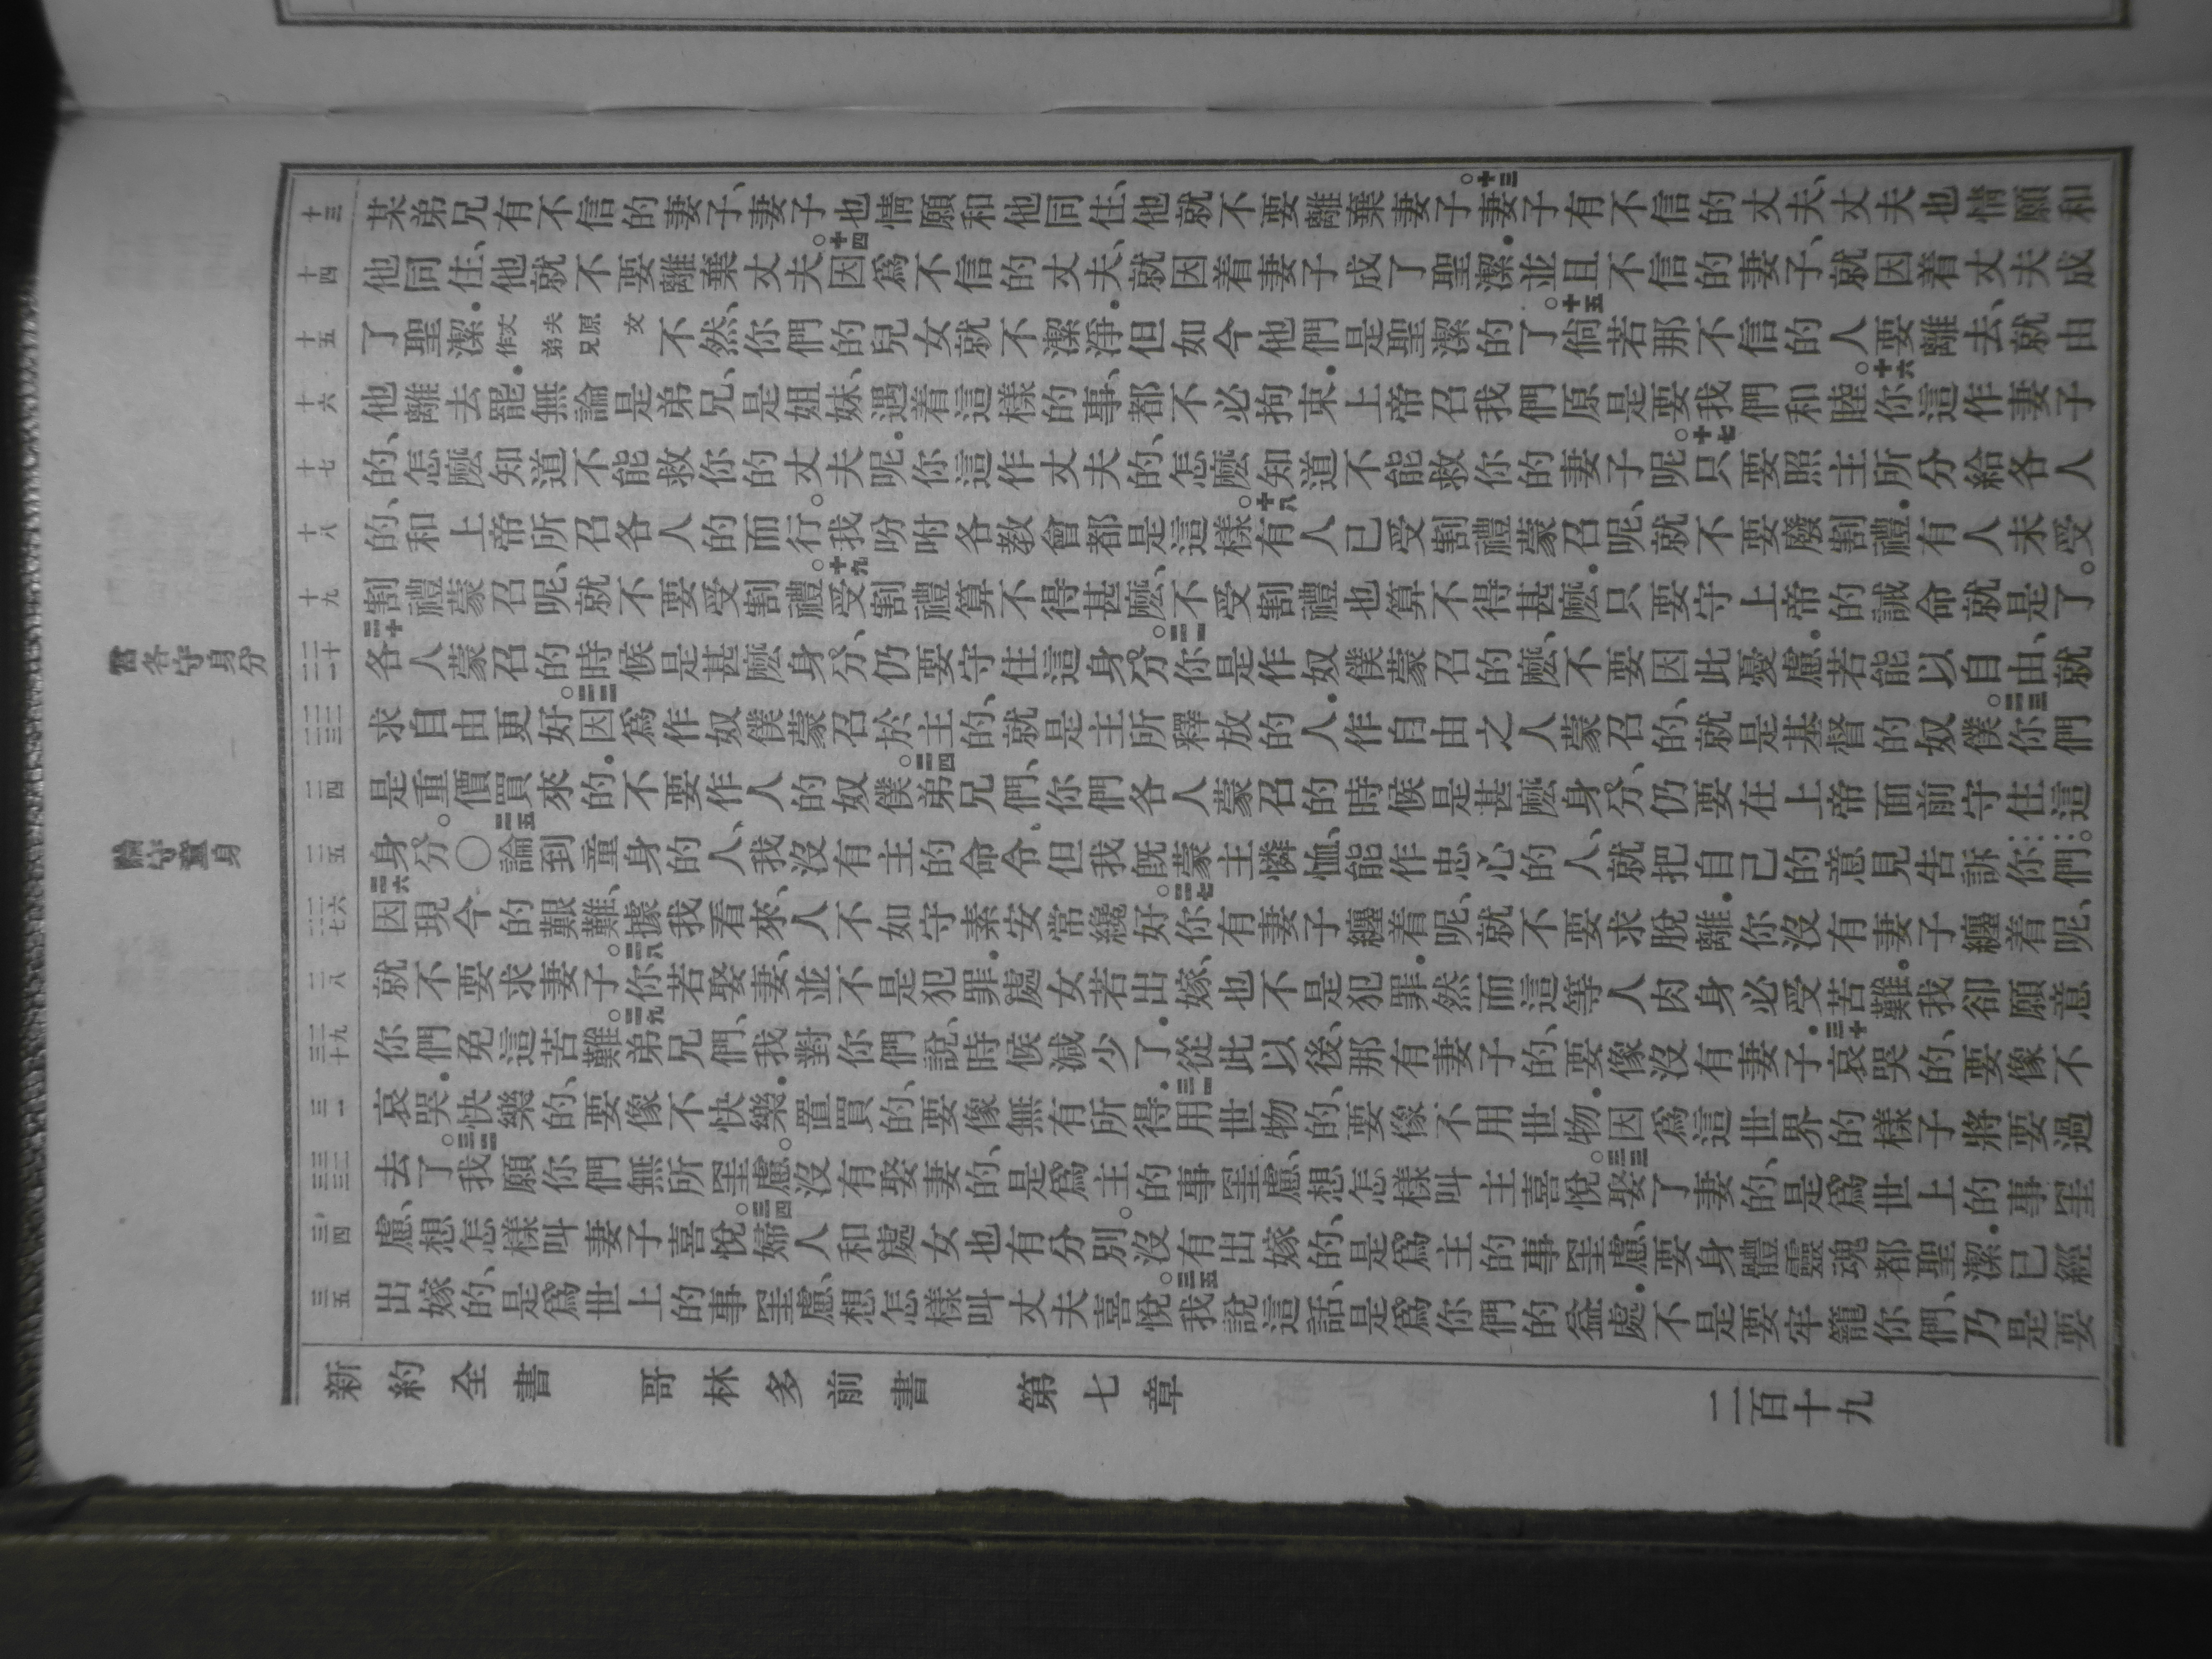 各守身分
論守童身
十三 十四 十五 十六 十七 十八 十九 二十 二一 二二 二三 二四 二五 二六 二七 二八 二九 三十 三一 三二 三三 三四 三五
某弟兄有不信的妻子、妻子也情願和他同住、他就不要離棄妻子。十三妻子有不信的丈夫、丈夫也情願和
他同住、他就不要離棄丈夫。十四因爲不信的丈夫、就因着妻子成了聖潔.並且不信的妻子、就因着丈夫成
了聖潔.丈夫原文作弟兄不然、你們的兒女就不潔淨.但如今他們是聖潔的了。十五倘若那不信的人要離去、就由
他離去罷.無論是弟兄、是姐妹、遇着這樣的事、都不必拘束.上帝召我們原是要我們和睦。十六你這作妻子
的、怎麽知道不能救你的丈夫呢.你這作丈夫的、怎麽知道不能救你的妻子呢。十七只要照主所分給各人
的、和上帝所召各人的而行。我吩咐各教會都是這樣。十八有人已受割禮蒙召呢、就不要廢割禮.有人未受
割禮蒙召呢、就不要受割禮。十九受割禮算不得甚麽、不受割禮也算不得甚麽.只要守上帝的誡命就是了。
二十各人蒙召的時候是甚麽身分、仍要守住這身分。二一你是作奴僕蒙召的麽、不要因此憂慮.若能以自由、就
求自由更好。二二因爲作奴僕蒙召於主的、就是主所釋放的人.作自由之人蒙召的、就是基督的奴僕。二三你們
是重價買來的.不要作人的奴僕。二四弟兄們、你們各人蒙召的時候是甚麽身分、仍要在上帝面前守住這
身分。〇二五論到童身的人、我沒有主的命令、但我旣蒙主憐恤、能作忠心的人、就把自己的意見告訴你們。
二六因現今的艱難、據我看來、人不如守素安常纔好。二七你有妻子纏着呢、就不要求脫離.你沒有妻子纏着呢、
就不要求妻子。二八你若娶妻、並不是犯罪.處女若出嫁、也不是犯罪.然而這等人肉身必受苦難.我卻願意
你們免這苦難。二九弟兄們、我對你們說、時候減少了.從此以後、那有妻子的、要像沒有妻子.三十哀哭的、要像不
哀哭.快樂的、要像不快樂.置買的、要像無有所得.三一用世物的、要像不用世物.因爲這世界的樣子將要過
去了。三二我願你們無所罣慮。沒有娶妻的、是爲主的事罣慮、想怎樣叫主喜悅。三三娶了妻的、是爲世上的事罣
慮、想怎樣叫妻子喜悅。三四婦人和處女也有分別。沒有出嫁的、是爲主的事罣慮、要身體靈魂都聖潔.已經
出嫁的、是爲世上的事罣慮、想怎樣叫丈夫喜悅。三五我說這話、是爲你們的益處.不是要牢籠你們、乃是要
新約全書 哥林多前書 第七章 二百十九